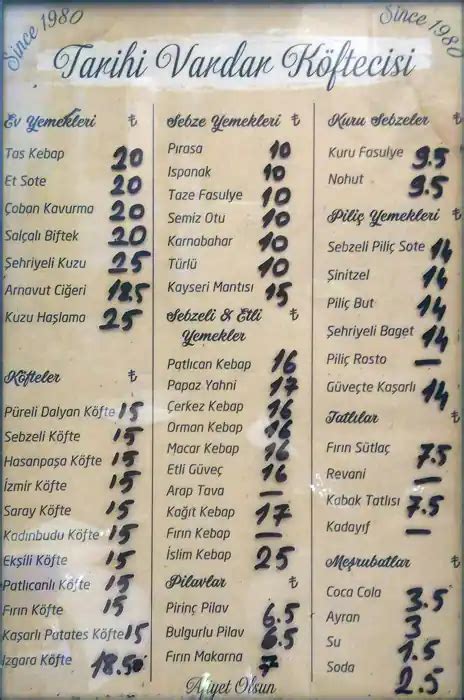 Since 1980
Since 1980
Tarihi Vardar Köftecisi
Ev Yemekleri ₺
Tas Kebap 20
Et Sote 20
Çoban Kavurma 20
Salçalı Biftek 20
Şehriyeli Kuzu 25
Arnavut Ciğeri 18.5
Kuzu Haşlama 25
Köfteler ₺
Püreli Dalyan Köfte 15
Sebzeli Köfte 15
Hasanpaşa Köfte 15
İzmir Köfte 15
Saray Köfte 15
Kadınbudu Köfte 15
Ekşili Köfte 15
Patlıcanlı Köfte 15
Fırın Köfte 15
Kaşarlı Patates Köfte 15
Izgara Köfte 18.50
Sebze Yemekleri ₺
Pırasa 10
Ispanak 10
Taze Fasulye 10
Semiz Otu 10
Karnabahar 10
Türlü 10
Kayseri Mantısı 15
Sebzeli & Etli ₺
Yemekler
Patlıcan Kebap 16
Papaz Yahni 17
Çerkez Kebap 16
Orman Kebap 16
Macar Kebap 16
Etli Güveç 16
Arap Tava —
Kağıt Kebap 17
Fırın Kebap —
İslim Kebap 25
Pilavlar ₺
Pirinç Pilav 6.5
Bulgurlu Pilav 6.5
Fırın Makarna 7
Kuru Sebzeler ₺
Kuru Fasulye 9.5
Nohut 9.5
Piliç Yemekleri ₺
Sebzeli Piliç Sote 14
Şinitzel 14
Piliç But 14
Şehriyeli Baget 14
Piliç Rosto —
Güveçte Kaşarlı 14
Tatlılar ₺
Fırın Sütlaç 7.5
Revani —
Kabak Tatlısı 7.5
Kadayıf —
Meşrubatlar ₺
Coca Cola 3.5
Ayran 3
Su 1.5
Soda 2.5
Afiyet Olsun